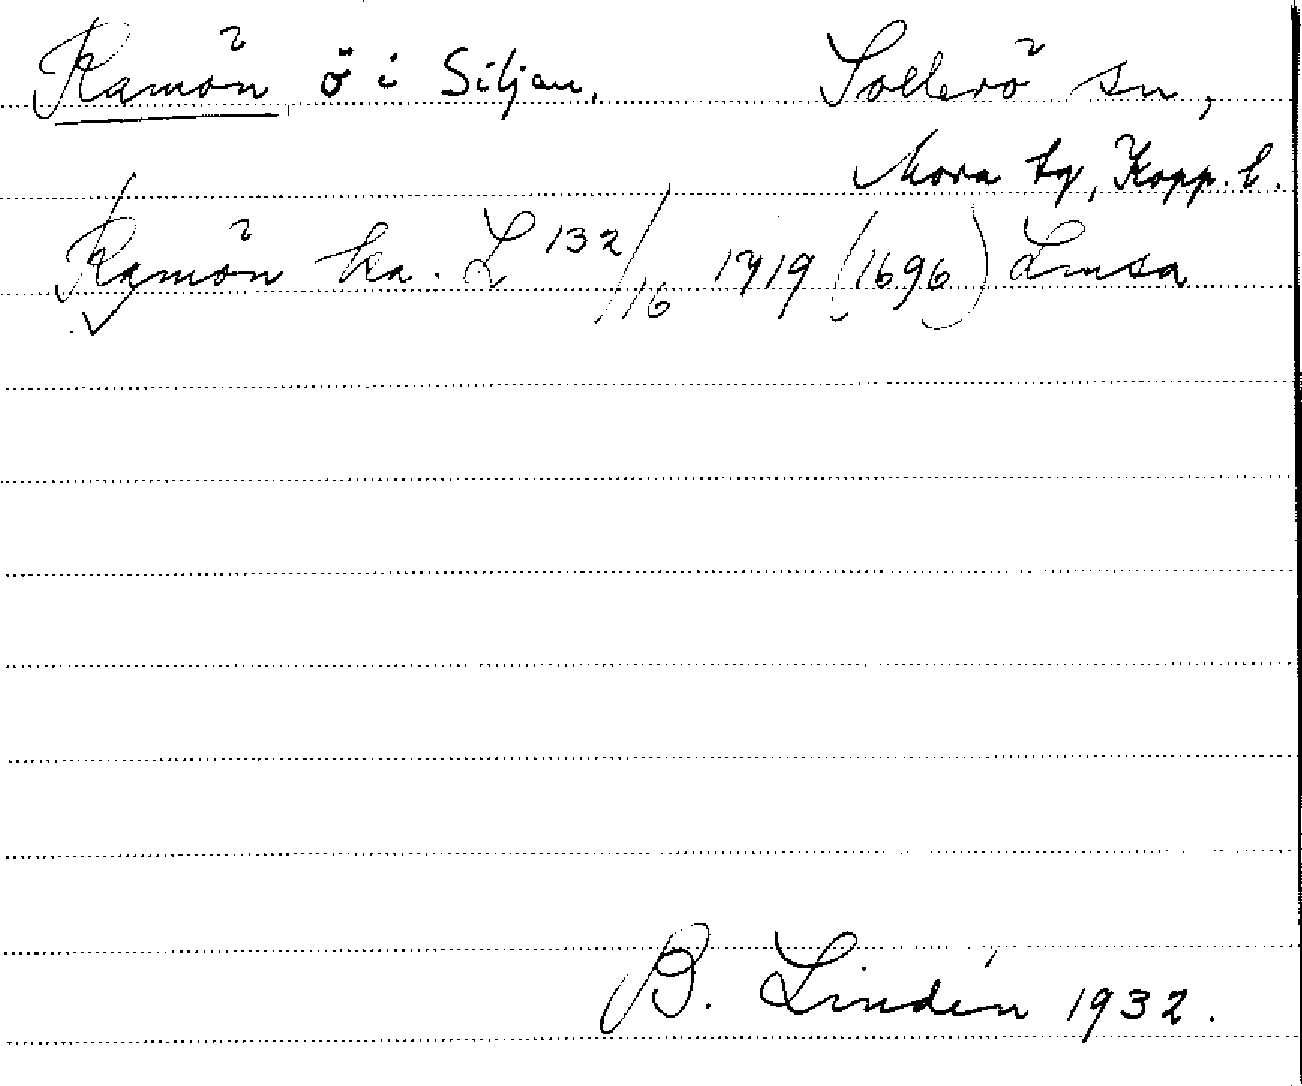 Ramön ö i Siljan. Sollerö sn,
Mora tg, Kopp. l.
Ramön ka. L 132/16 1719 (1696) Lmsa
B. Lindén 1932.